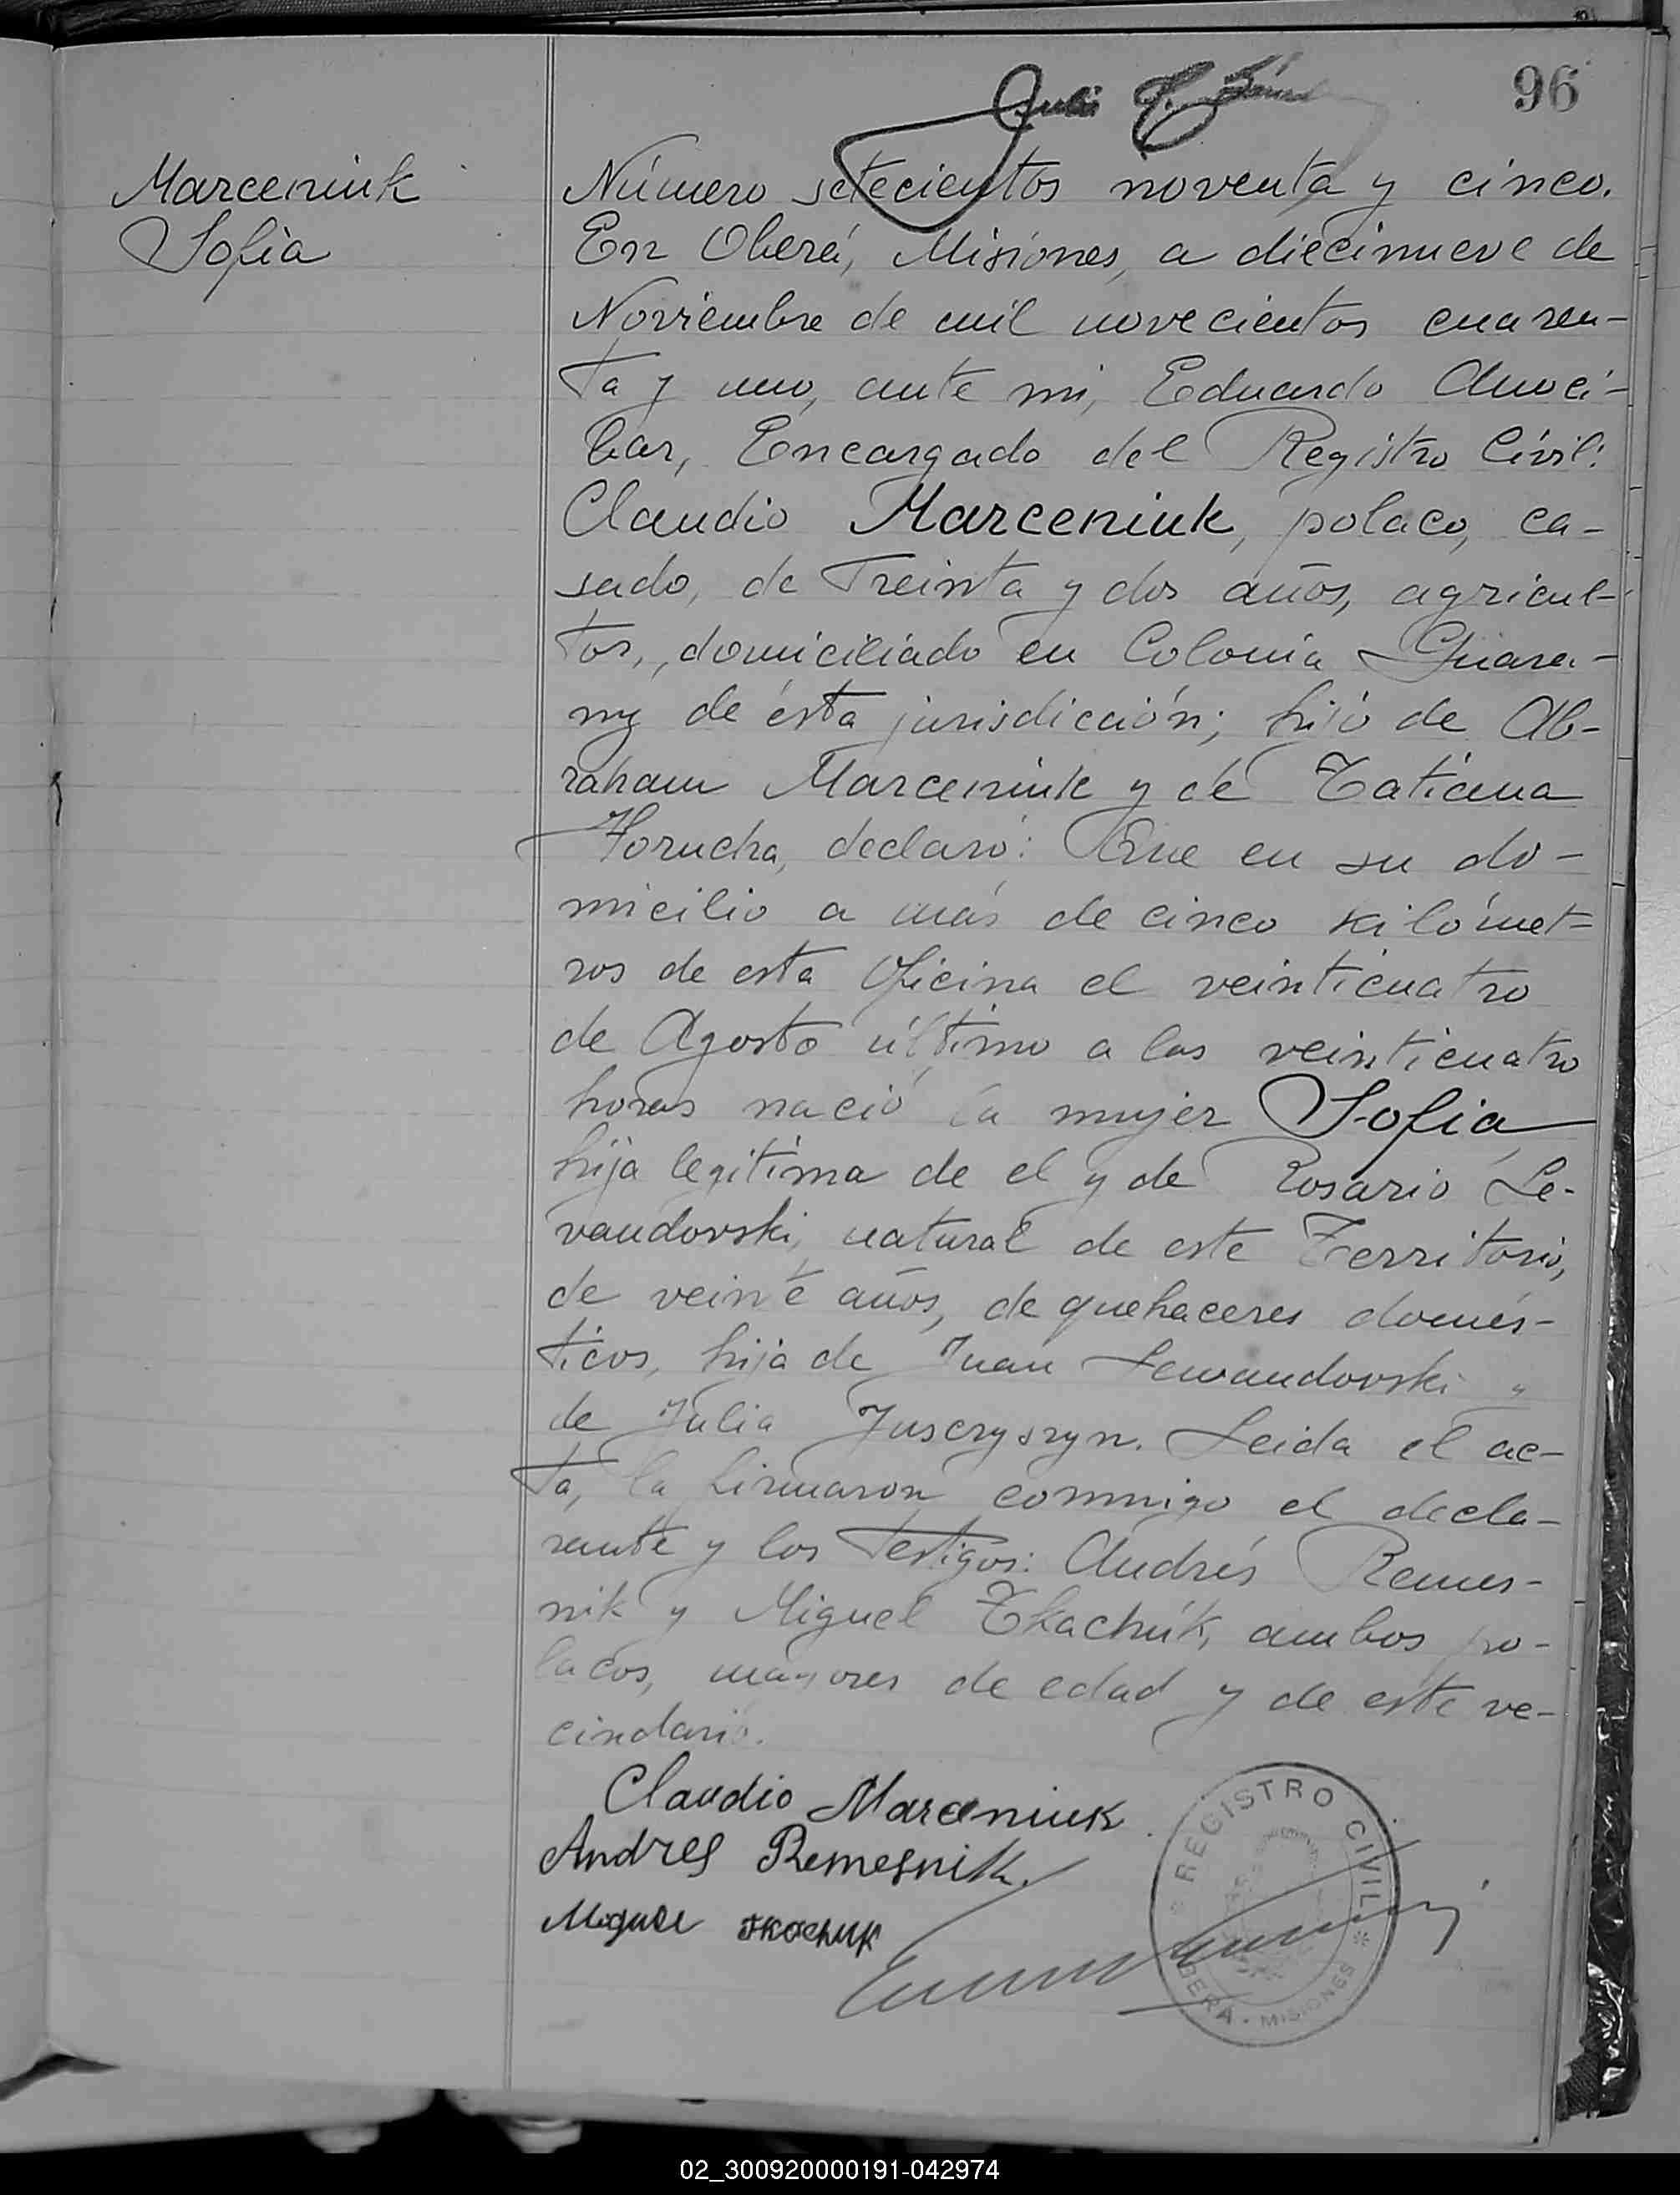 96
Marceniuk
Sofia
Número setecientos noventa y cinco.
En Oberá, Misiones, a diecinueve de
Noviembre de mil novecientos cuaren-
ta y uno, ante mi, Eduardo Amoci-
bar, Encargado del Registro Civil:
Claudio Marceniuk, polaco, ca-
sado, de treinta y dos años, agricul-
tor, domiciliado en Colonia Guara-
ny de ésta jurisdicción; hijo de Ab-
raham Marceniuk y de Tatiana
Horucha, declaró: Que en su do-
micilio a más de cinco kilómet-
ros de esta Oficina el veinticuatro
de Agosto último a las veinticuatro
horas nació la mujer Sofia
hija legitima de el y de Rosario Le-
vandovski, natural de este Territorio,
de veinte años, de quehaceres domés-
ticos, hija de Juan Lewandovski y
de Julia Juscryszyn. Leida el ac-
ta, la firmaron conmigo el decla-
rante y los testigos: Andrés Remes-
nik y Miguel Tkachuk, ambos po-
lacos, mayores de edad y de este ve-
cindario.
Claudio Marceniuk
Andres Remesnik.
Miguel Tkachuk
REGISTRO CIVIL
OBERA - MISIONES
02_300920000191-042974